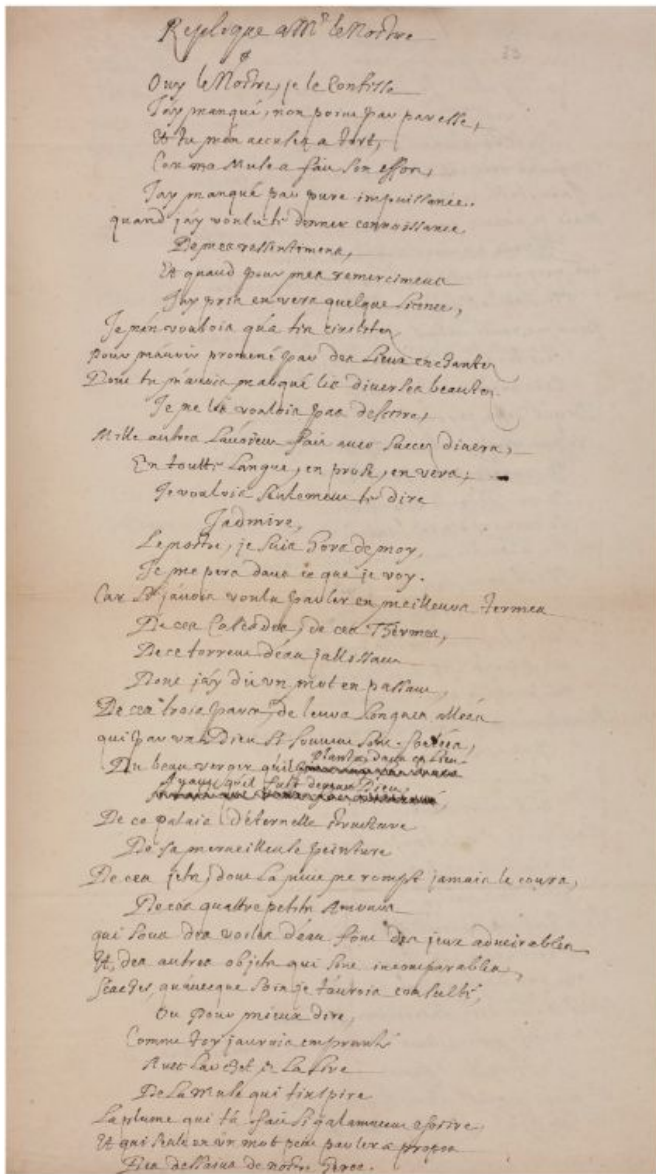 Replique a Mr le Nostre
Ouy le Nostre, je le Confesse
J'ay manqué, non point par paresse,
Et tu m'en accuses a tort,
Car ma Muse a fait son effort,
J'ay manqué par pure impuissance.
quand j'ay voulu te donner connoissance
De mes ressentimens,
Et quand pour mes remercimens
J'ay pris en vers quelque licence,
Je n'en voulois qu'a tes civilitez
pour m'avoir promené par des Lieux enchantez
Dont tu m'avois marqué les diverses beautez
Je ne les voulois pas descrire,
Mille autres L'avoient fait avec succez divers,
En toutte Langue, en prose, en vers;
Je voulois seulement te dire
J'admire,
Le nostre, je suis hors de moy,
Je me pers dans ce que je voy.
Car si j'avois voulu parler en meilleurs termes
De ces Cascades, de ces Thermes,
De ce torrent d'eau jallissant
Dont j'ay dit un mot en passant,
De ces trois parcs, de leurs longues allées
qui par un Dieu si souvent sont
Du beau verger qu'il planta dans ce Lieu
Avant qu'il fust devenu Dieu,
De ce palais d'éternelle structure
De sa merveilleuse peinture
De ces jets, dont La nuit ne rompt jamais le cours,
De ces quattre petits Amours
qui sous des voiles d'eau font des jeux admirables
Et, des autres objets qui sont incomparables,
quavecque soin je t'aurois consulté,
Ou pour mieux dire,
Comme toy j'aurois emprunté
& La Lire
De La Muse qui t'inspire
La plume qui t'a fait si galamment escrire,
Et qui seule en un mot peut parler a propos
Des desseins de nostre